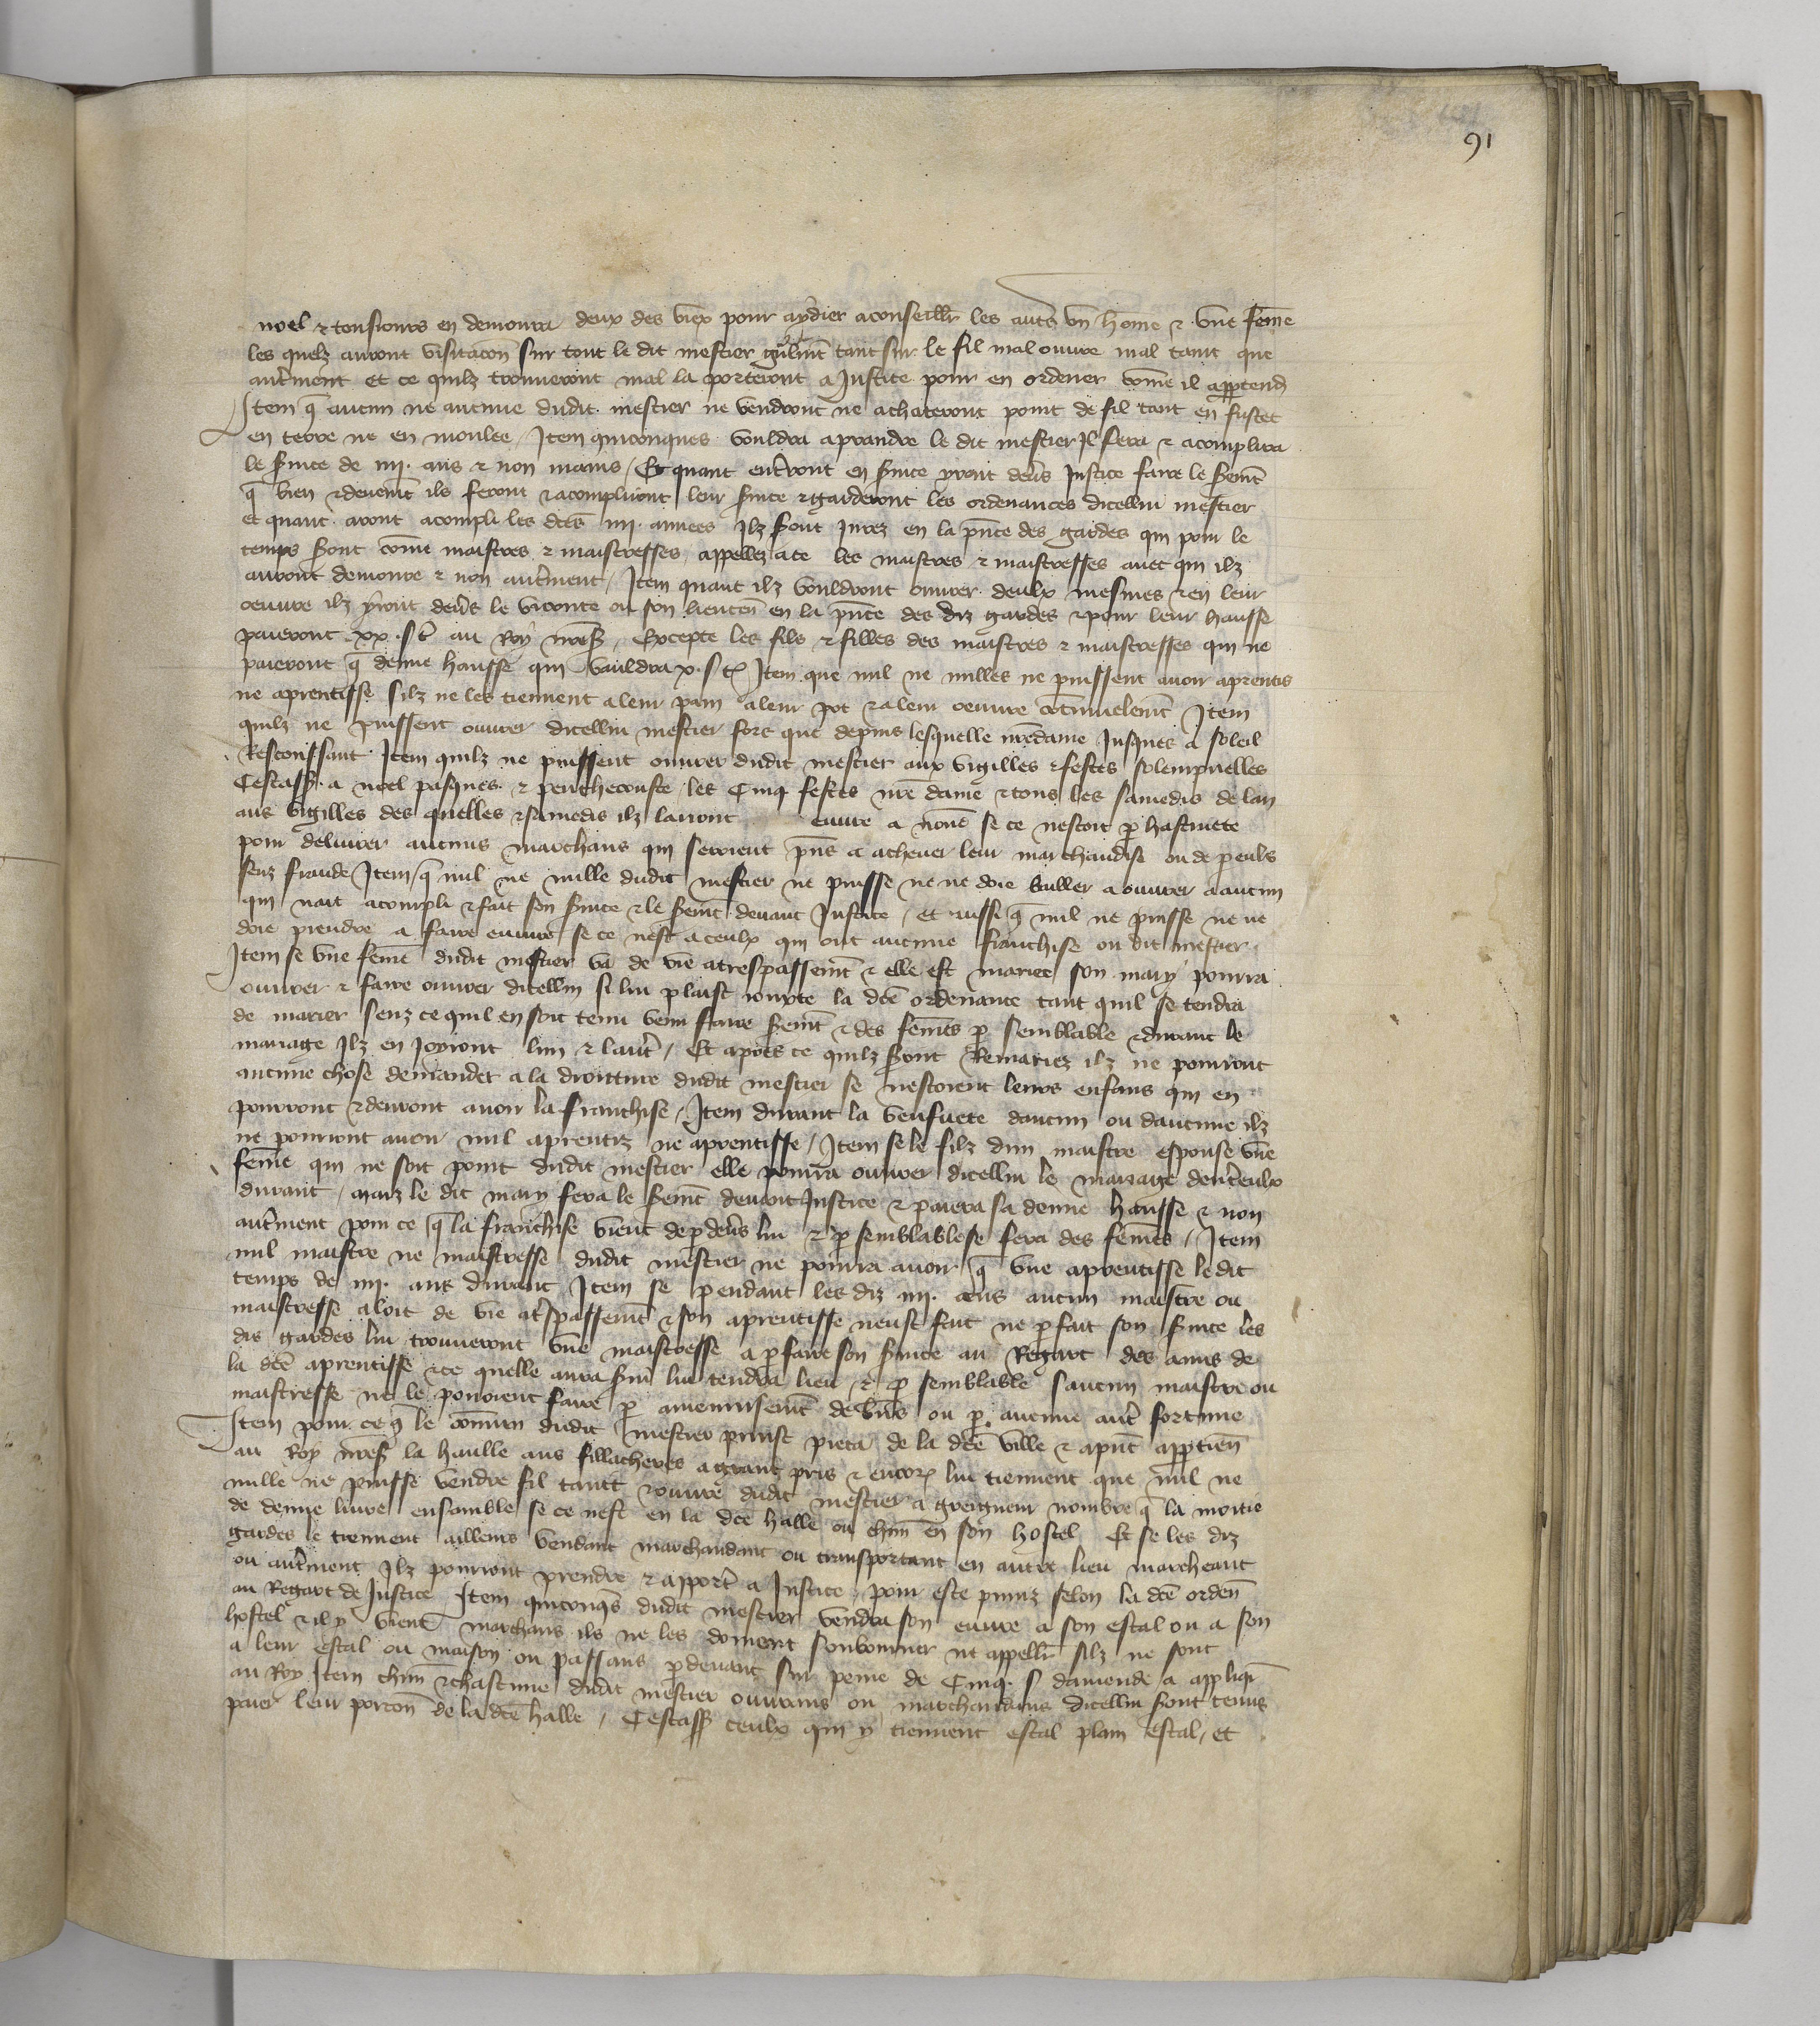 91
noel & tousiours en demourra deux des viex pour aydier a conseillr les autes un home & une feme
les quelz auront visitacon sur tout le dit mestier tant sur le fil mal ouvre mal tant que
autrment et ce quilz trouveront mal la porteront a Justice pour en ordener come il appartend
Item q aucun ne aucune dudit mestier ne vendront ne achateront point de fil tant en fustet
en terre ne en moulee / Item quiconques vouldra aprandre le dit mestier Il sera & acomplira
le svice de iiij. ans & non mains / Et quant entrront en svice yront devs Justice faire le sermt
q bien & deuemt ils feront & acompliront leur svice & garderont les ordenances dicellui mestier
et quant aront acompli les dces iiij. annees Ilz sont Jurez en la pnce des gardes qui pour le
temps sont come maistres & maistresses appellez a ce les maistres & maistresses avec qui ilz
auront demoure & non autrment / Item quant ilz vouldront ouvrer deulx mesmes & en leur
oeuvre ilz yront devs le viconte ou son lieuten en la pnce des diz gardes & pour leur hausse
paieront xx. s t au Roy nres / Excepte les filz & filles des maistres & maistresses qui ne
paieront q demie hausse qui vauldra x. s t Item que nul ne nulles ne puissent avoir aprentis
ne aprentisse silz ne les tiennent a leur pain a leur pot & a leur oeuvre contmuelemt Item
quilz ne puissent ouvrer dicellui mestier fors que depuis lesquelle nredame Jusques a soleil
Resconssant Item quilz ne puissent ouvrer dudit mestier aux vigilles & festes solempnelles
Cestass. a noel pasques. & penthecouste les Cinq festes nre dame & tous les samedis de lan
aus vigilles des quelles & samedis ilz lairont euvre a none se ce nestoit p hastivete
pour delivrer aucuns marchans qui seroient pns a achever leur marchandise ou de peulx
senz fraude Item q nul ne nulle dudit mestier ne puisse ne ne doie bailler a ouvrer a aucun
qui nait acompli & fait son svice & le sermt devant Justice / et aussi q nul ne puisse ne ne
doie prendre a faire euvre se ce nest a ceulx qui ont aucune franchise ou dit mestier
Item se une feme dudit mestier va de vie a trespassemt & elle est mariee son mary pourra
ouvrer & faire ouvrer dicellui si lui plaist la dce ordenance tant quil se tendra
de marier senz ce quil en soit tenu faire sermt & des femes p semblable & durant le
mariage Ilz en Joyront lun & lautr / Et apres ce quilz sont Remariez ilz ne pourront
aucune chose demander a la droitture dudit mestier se nestoient leurs enfans qui en
pourront & devront avoir la franchise / Item durant la veufvete daucun ou daucune ilz
ne pourront avoir nul aprentiz ne aprentisse / Item se le filz dun maistre espouse une
feme qui ne soit point dudit mestier elle pourra ouvrer dicellui le mariage dentreulx
durant / maiz le dit mary fera le sermt devant Justice & paiera sa demie hausse & non
autrment pour ce q la franchise vient de p devs lui & p semblable se fera des femes / Item
nul maistre ne maistresse dudit mestier ne pourra avoir q une aprentisse ledit
temps de iiij. ans durant Item se pendant les diz iiij. ans aucun maistre ou
maistresse aloit de vie a trspassemt & son aprentisse neust fait ne pfait son svice les
dis gardes lui trouveront une maistresse a pfaire son svice au Regart des amis de
la dce aprentisse & ce quelle aura svi lui tendra lieu & p semblable saucun maistre ou
maistresse ne le povoient faire p amenuisemt de biens ou p aucune autr fortune
Item pour ce q le comun dudit mestier prinst pieca de la dce ville & apnt apptien
au Roy nres la haulle aus fillacheres a grant pris & encor lui tiennent que nul ne
nulle ne puisse vendre fil taint & ouvre dudit mestier a greigneur nombre q la moitie
de demie livre ensemble se ce nest en la dce halle ou chun en son hostel Et se les diz
gardes le treuvent ailleurs vendant marchandant ou transportant en autre lieu marcheant
ou autrment Ilz pourront prendre & apportr a Justice pour este puniz selon la dce orden
au Regart de Justice Item quiconqs dudit mestier vendra son euvre a son estal ou a son
hostel & il y vient marchans ils ne les doivent ne appellr silz ne sont
a leur estal ou maison ou passans p devant sur peine de Cinq. s damende a appliqr
au Roy Item chun & chascune dudit mestier ouvrans ou marchandans dicellui sont tenus
paier leur porcon de la dce halle / Cestass ceulx qui y tiennent estal plain estal / et